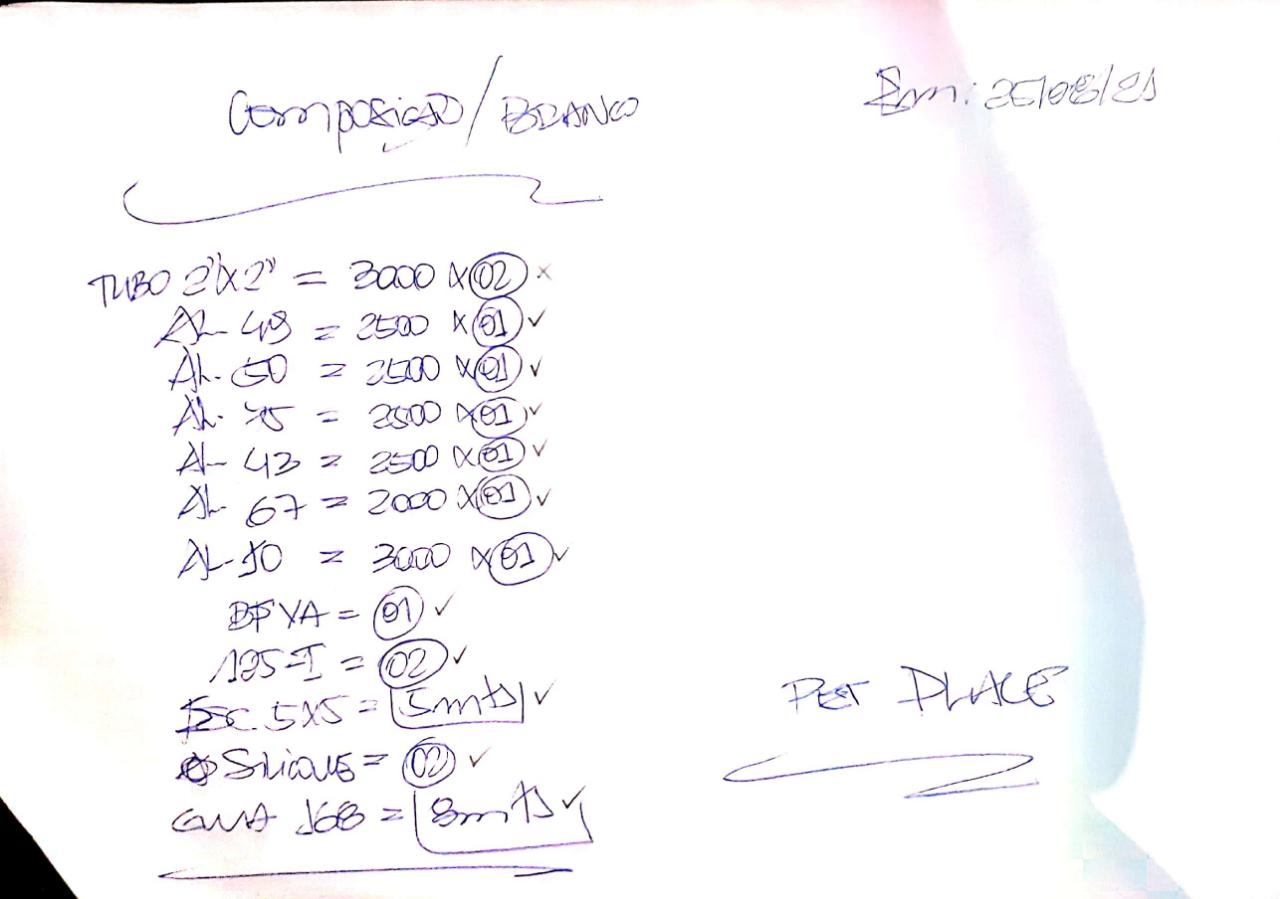 Composição/BRANCO
Em: 25/08/21
TUBO 2"X2" = 3000 X 02 x
AL- 49 = 2500 X 01 ✓
AL. 50 = 2500 X 01 ✓
AL. 75 = 2500 X 01 ✓
AL- 43 = 2500 X 01 ✓
AL. 67 = 2000 X 01 ✓
AL-10 = 3000 X 01 ✓
= 01 ✓
195-I = 02 ✓
ESC. 5X5 = 5mts ✓
Silicone = 02 ✓
168 = 8mts ✓
PET PLACE